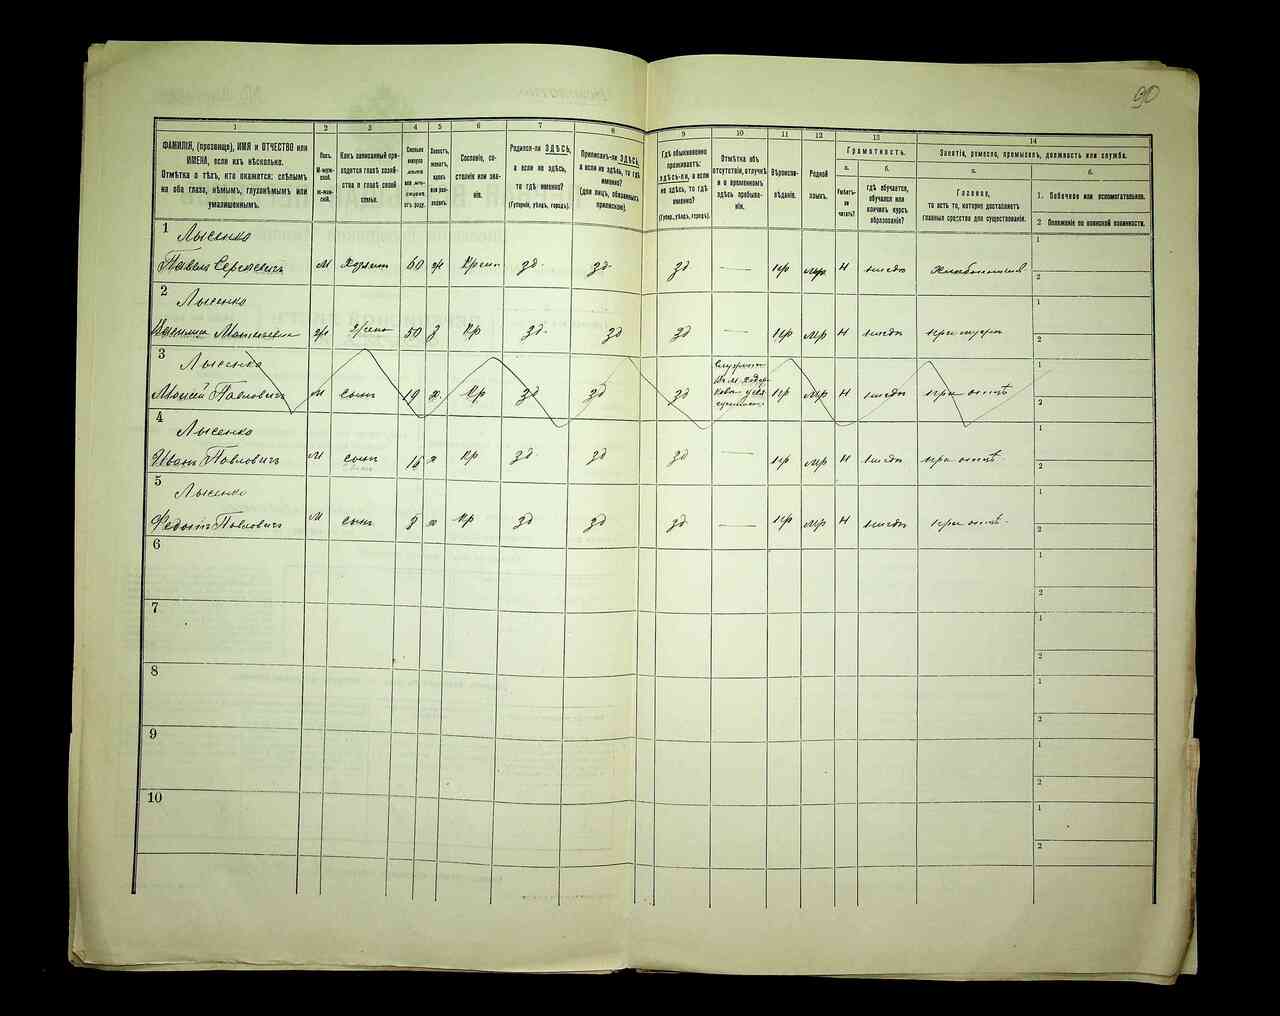 90
1 2 3 4 5 6 7 8 9 10 11 12 13 14
ФАМИЛІЯ, (прозвище), ИМЯ и ОТЧЕСТВО или
ИМЕНА, если ихъ нѣсколько.
Отмѣтка о тѣхъ, кто окажется: слѣпымъ
на оба глаза, нѣмымъ, глухонѣмымъ или
умалишеннымъ.
Полъ.
М-муж-
ской.
Ж-жен-
скій.
Какъ записанный при-
ходится главѣ хозяй-
ства и главѣ своей
семьи.
Сколько
минуло
лѣтъ
отъ роду.
Холостъ,
женатъ,
вдовъ
или раз-
веденъ.
Сословіе, со-
стояніе или зва-
ніе.
Родился-ли ЗДѢСЬ,
а если не здѣсь,
то гдѣ именно?
(Губернія, уѣздъ, городъ).
Приписанъ-ли ЗДѢСЬ,
а если не здѣсь, то гдѣ
именно?
(для лицъ, обязанныхъ
припискою).
Гдѣ обыкновенно
проживаетъ:
здѣсь-ли, а если
не здѣсь, то гдѣ
именно?
(Губер., уѣздъ, городъ).
Отмѣтка объ
отсутствіи, отлучкѣ
и о временномъ
здѣсь пребыва-
ніи.
Вѣроиспо-
вѣданіе.
Родной
языкъ.
Грамотность.
а. б.
Умѣетъ-
ли
читать?
гдѣ обучается,
обучался или
кончилъ курсъ
образованія?
Занятіе, ремесло, промыселъ, должность или служба.
а. б.
Главное,
то есть то, которое доставляетъ
главныя средства для существованія.
1. Побочное или вспомогательное.
2 Положеніе по воинской повинности.
1 Лысенко
Павелъ Сергѣевичъ м хозяинъ 60 ж Крест зд. зд. зд — пр мр н нигдѣ 1
2
2 Лысенко
50 з Кр зд. зд зд — пр мр н нигдѣ при мужѣ 1
2
3 Лысенко
Моисей Павловичъ м сынъ 19 х. Кр зд зд зд пр мр н нигдѣ при отцѣ 1
2
4 Лысенко
Иванъ Павловичъ м сынъ 16 х Кр зд зд зд — пр мр н нигдѣ при отцѣ. 1
2
5 Лысенко
Федотъ Павловичъ м сынъ 8 х Кр зд зд зд — пр мр н нигдѣ при отцѣ. 1
2
6 1
2
7 1
2
8 1
2
9 1
2
10 1
2